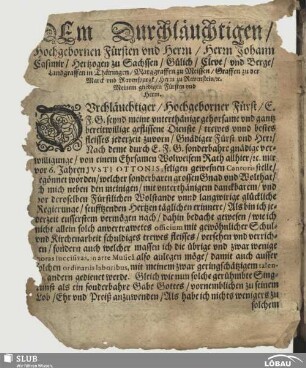 DEm Durchläuchtigen /
Hochgebornen Fürsten vnd Herrn / Herrn Johann
Casimir / Hertzogen zu Sachssen / Gülich / Cleve / vnd Berge /
Landgraffen in Thüringen / Marggraffen zu Meissen / Graffen zu der
Marck vnd Ravenspurgk / Herrn zu Ravenstein / ꝛc.
Meinem gnädigen Fürsten vnd
Herrn.
DVrchläuchtiger / Hochgeborner Fürst / E.
F. G. seynd meine vnterthänige gehorsame vnd gantz
bereitwillige geflissene Dienste / trewes vnnd bestes
fleisses jederzeit zuvorn / Gnädiger Fürst vnd Herr /
Nach deme durch E. F. G. sonderbahre gnädige ver-
willigunge / von einem Ehrsamen Wolweisem Rath allhier / ꝛc. mir
vor 6. Jahren JVSTI OTTONIS, seligen gewesenen Cantoris stelle /
vergönnet worden / welcher sonderbaren grossen Gnad vnd Wolthat /
ich mich neben den meinigen / mit vnterthänigem danckbarem / vnd
vor deroselben Fürstlichen Wolstande vnnd langwirige glückliche
Regierunge / seufftzenden Hertzen täglichen erinnere: Als bin ich je-
derzeit eusserstem vermögen nach / dahin bedacht gewesen / wie ich
nicht allein solch anvertrawetes officium mit gewöhnlicher Schul-
vnd Kirchenarbeit schuldiges trewes fleisses / versehen vnd verrich-
ten / sondern auch welcher massen ich die übrige vnd zwar wenige
horas succisivas, in arte Musicâ also anlegen möge / damit auch ausser
solchen ordinariis laboribus, mit meinem zwar geringschätzigem talen-
andern gedienet werde. Gleich wie nun solche gerühmte Sing-
kunst als ein sonderbahre Gabe Gottes / vornemblichen zu seinem
Lob / Ehr vnd Preiß anzuwenden / Als habe ich nichts wenigers zu
solchem
SLUB
Wir führen Wissen.
STADT
LÖBAU